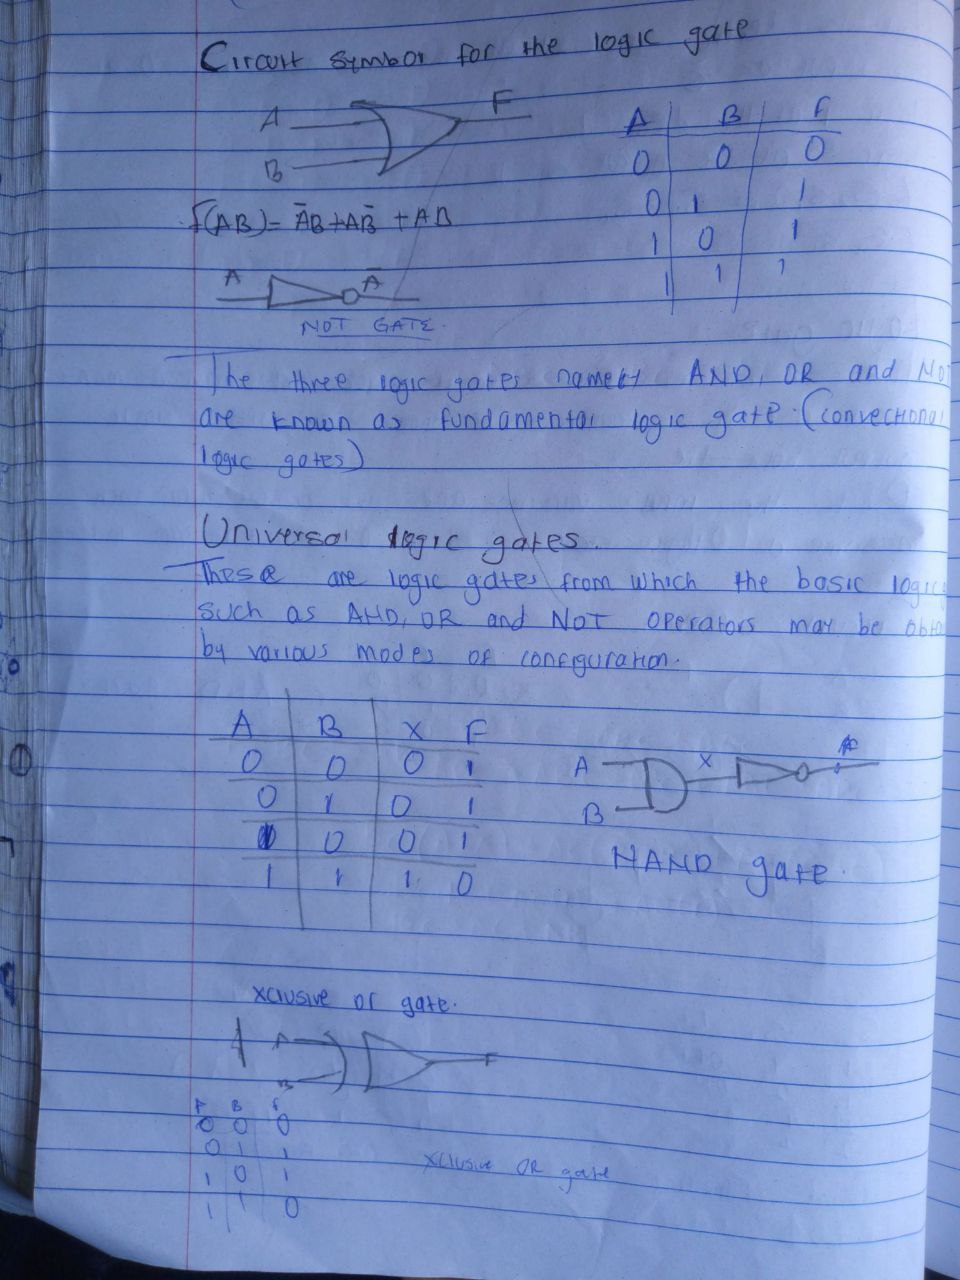 Circuit symbol for the logic gate
A
B
F
f(AB)= ĀB+AB̄ +AB
A B F
0 0 0
0 1 1
1 0 1
1 1 1
A Ā
NOT GATE.
The three logic gates namely AND, OR and NO
are known as fundamental logic gate. (convectional
logic gates)
Universal logic gates.
These are logic gates from which the basic logic
such as AND, OR and NOT operators may be obta
by various modes of configuration.
A B X F
0 0 0 1
0 1 0 1
0 0 1
1 1 1 0
A
B
X
NAND gate.
xclusive or gate.
A
B
F
A B F
0 0 0
0 1 1
1 0 1
1 1 0
xclusive OR gate